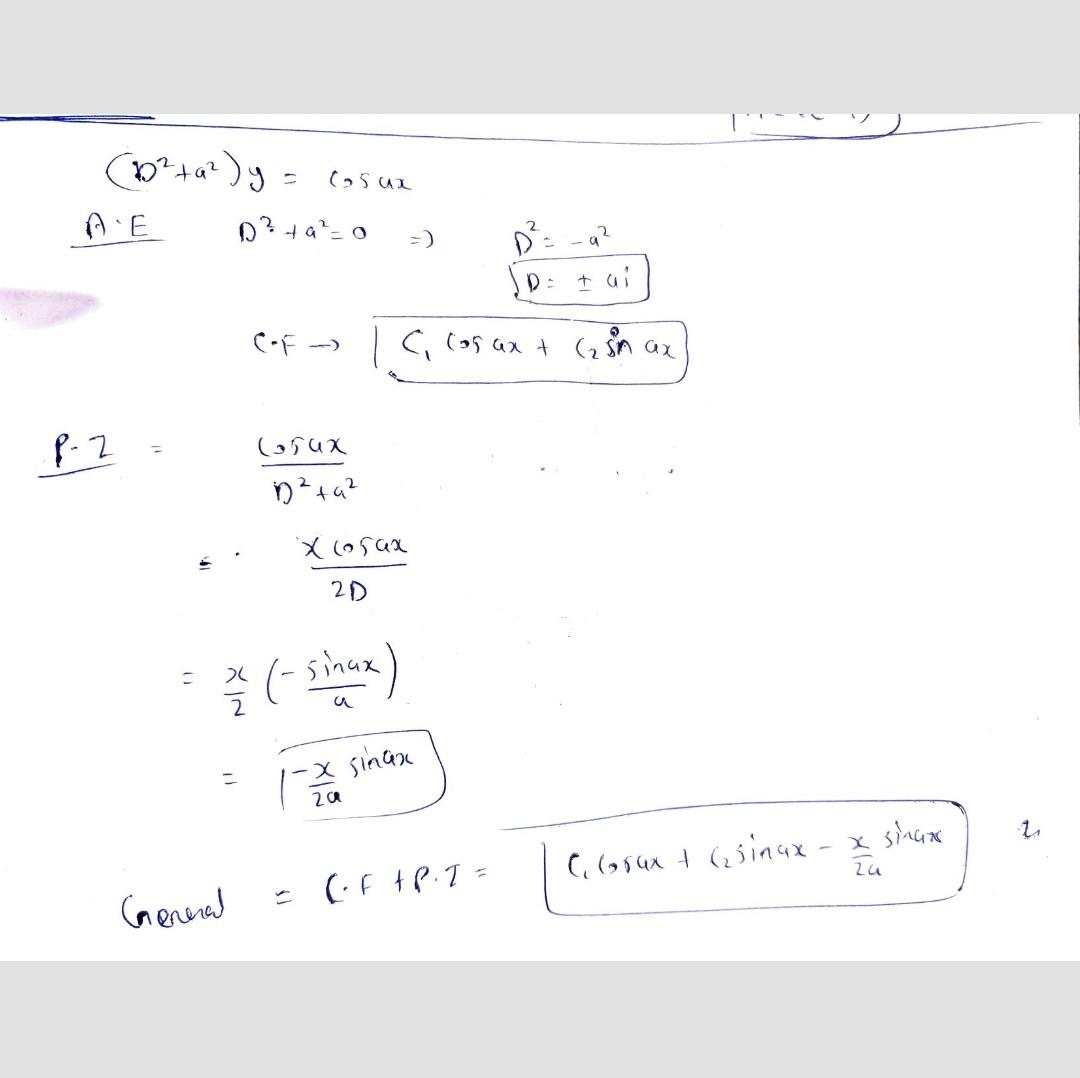 (D²+a²)y = cos ax
A·E D²+a²=0 => D²= -a²
D= ± ai
C·F → C₁ cos ax + C₂ sin ax
P·I = cos ax
D²+a²
= x cos ax
2D
= x/2 (- sin ax / a)
= -x/2a sin ax
General = C·F + P·I = C₁ cos ax + C₂ sin ax - x/2a sin ax